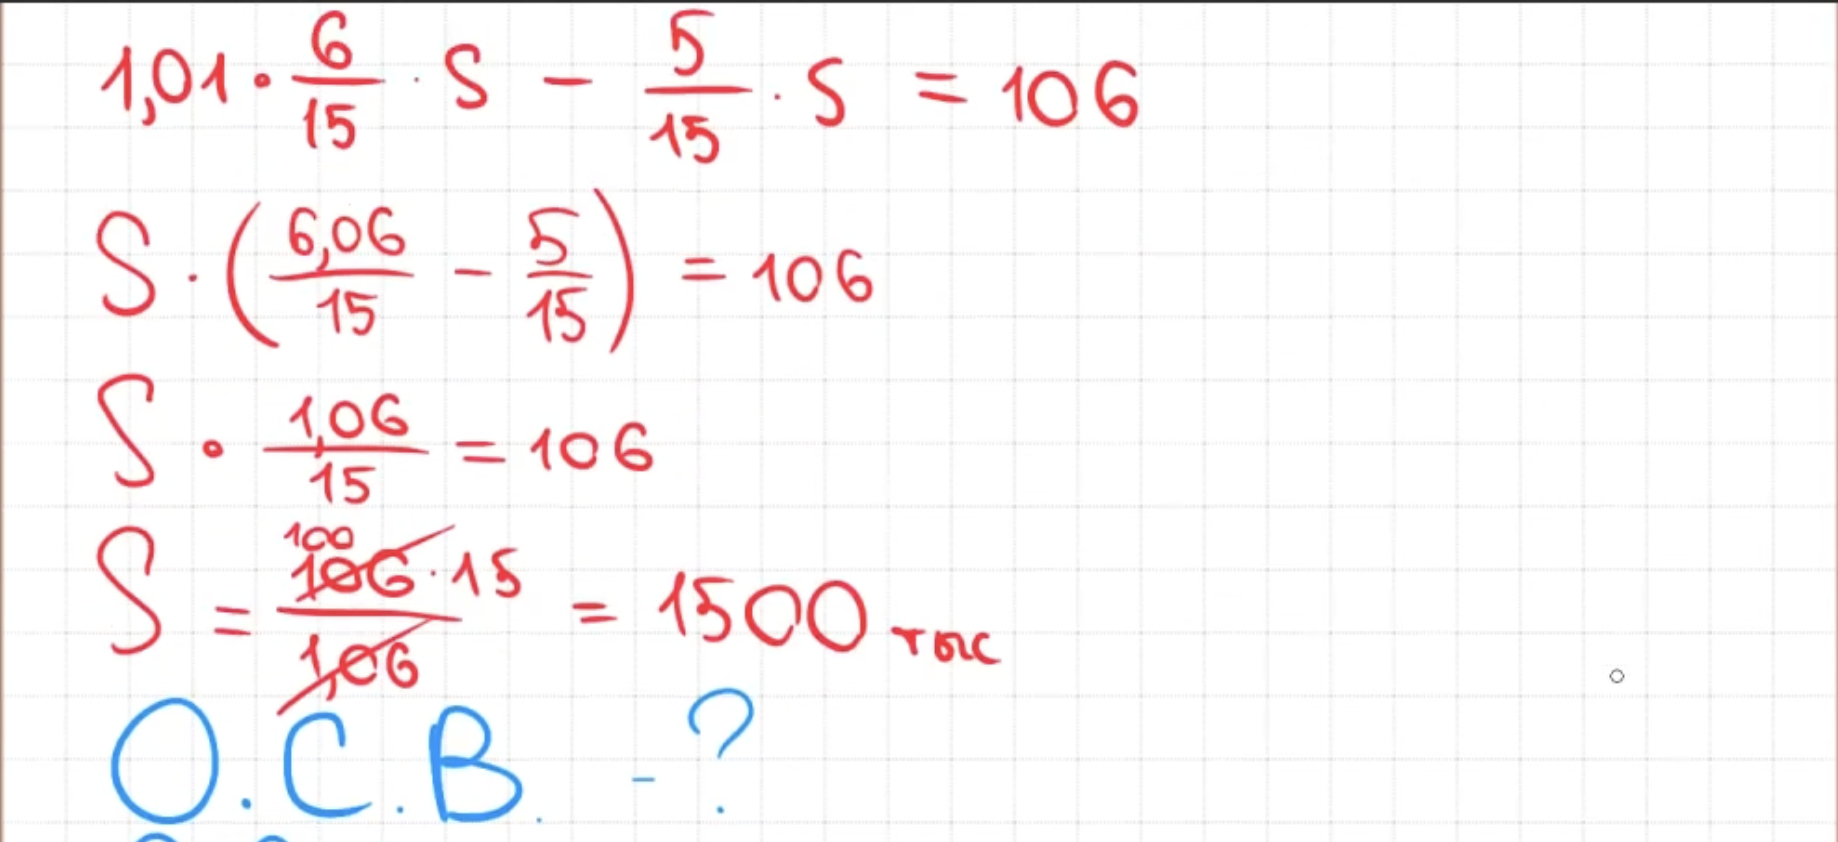 1,01 · 6/15 · S − 5/15 · S = 106
S · (6,06/15 − 5/15) = 106
S · 1,06/15 = 106
100
S = 106 · 15/1,06 = 1500 тыс
О.С.В. - ?